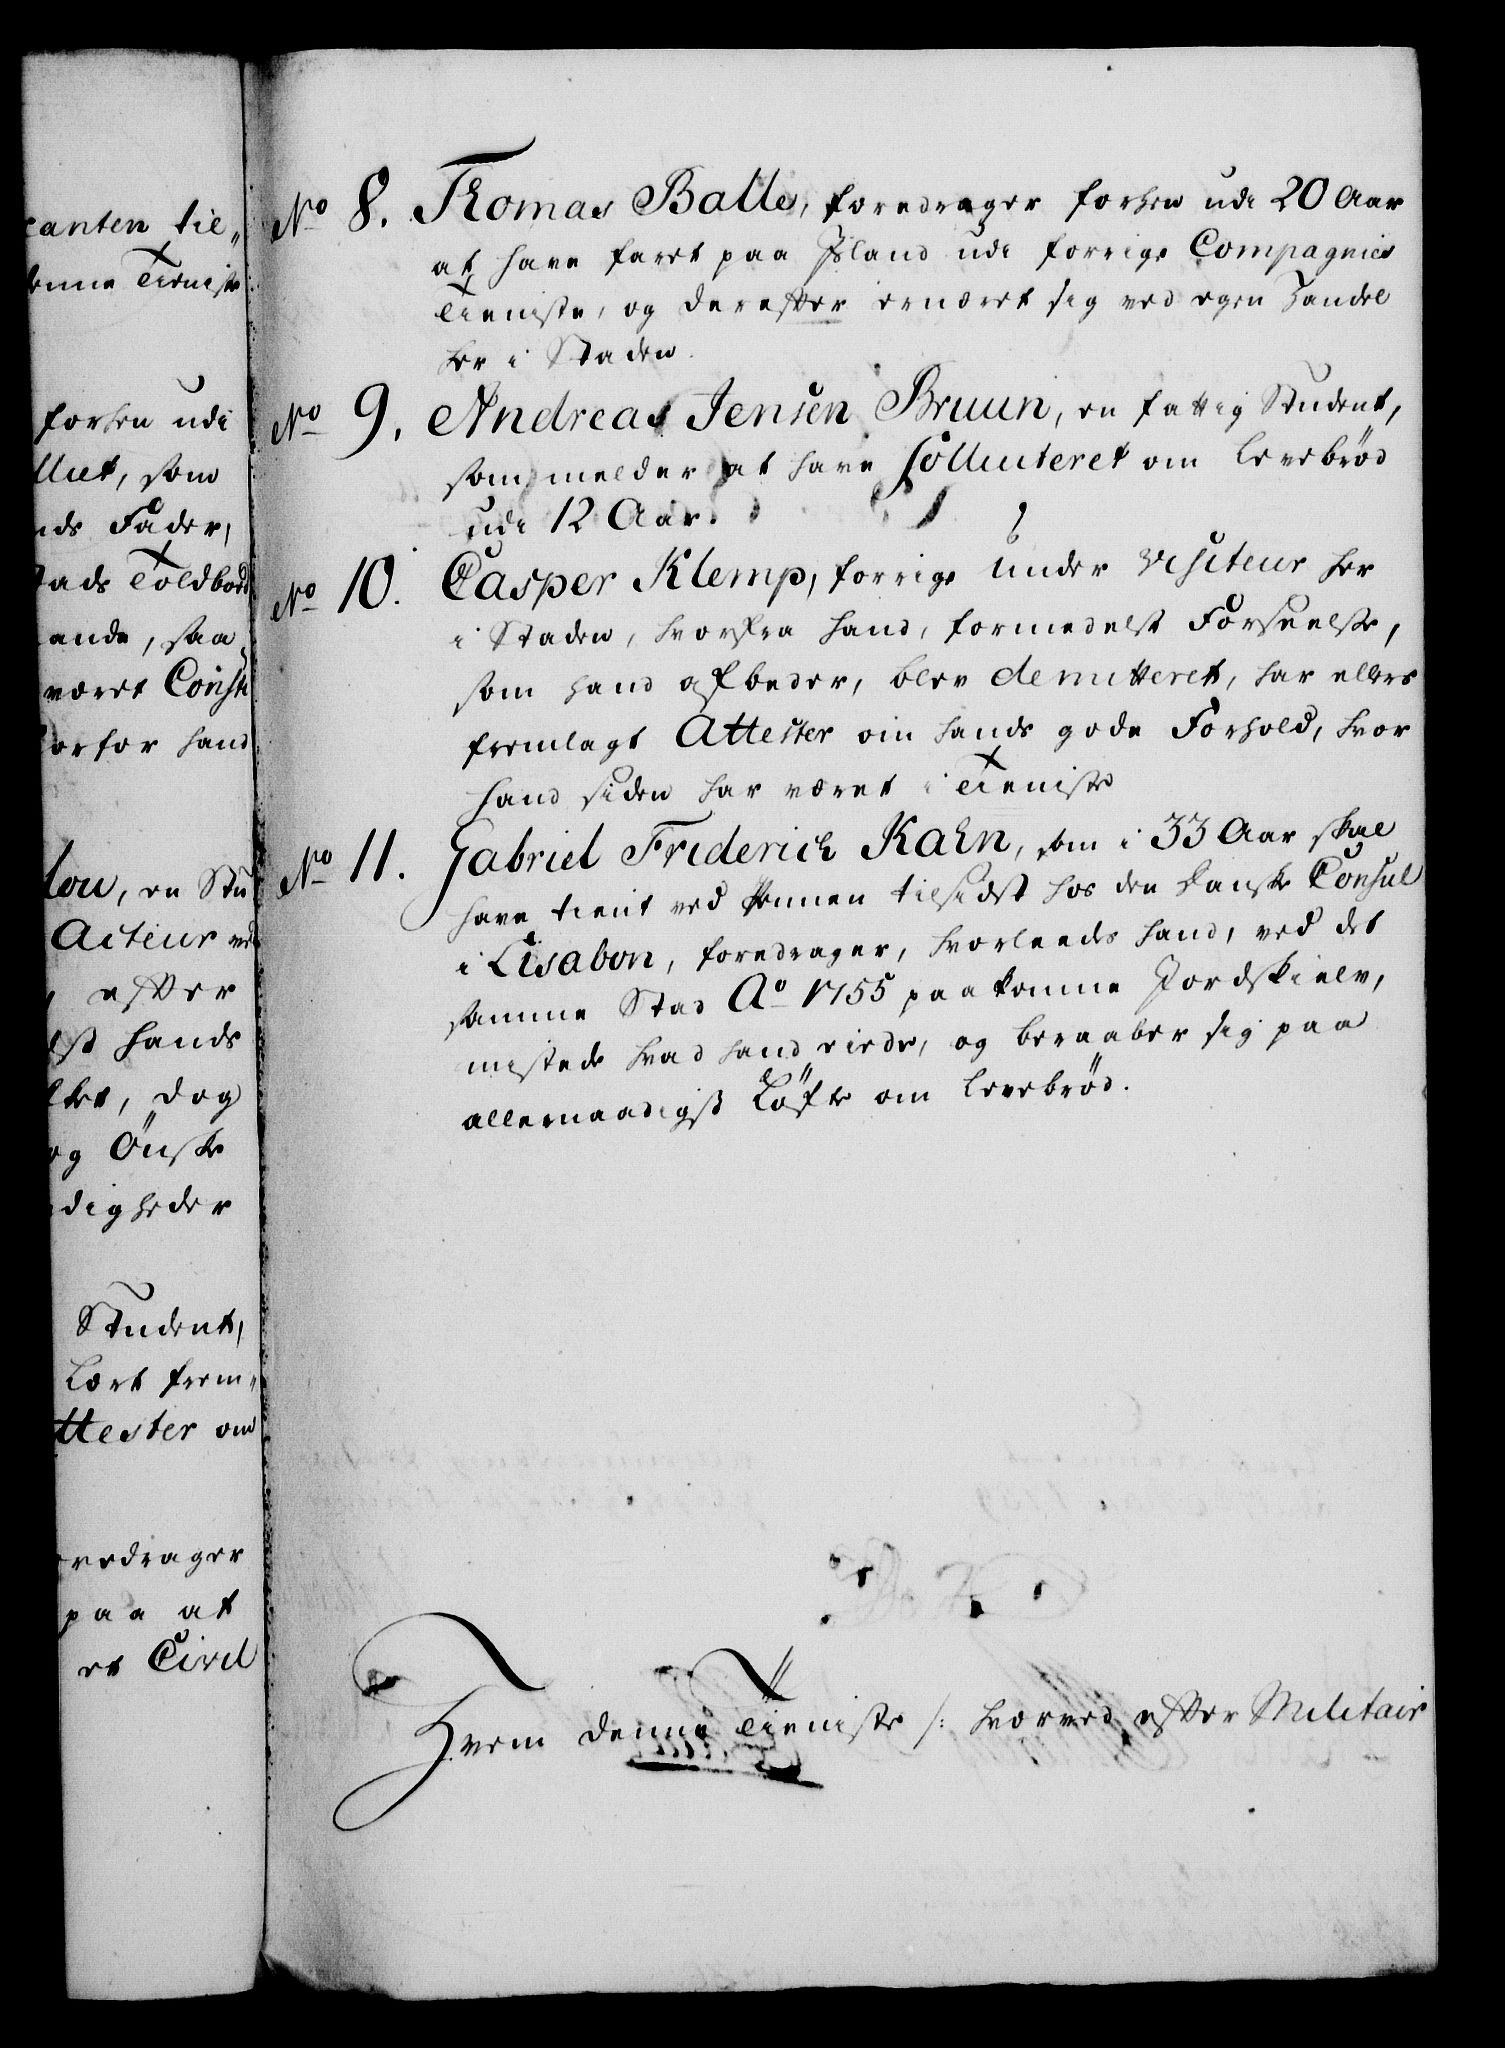 canten til„
denne Tieniste
forhen udi
lliet, som
nds Fader,
tads Toldbod
ande, saa
været Consti
orfor hand
lou, en Stu
Acteur ved
, efter
lst hands
lket, dog
og Ønske
digheder
Student,
lært frem„
ttester om
oredrager
paa at
et Civil
No 8. Thomas Balle, foredrager forhen udi 20 Aar
at have faret paa Island udi forrige Compagnies
Tieniste, og derefter ernæret sig ved egen Handel
her i Staden.
No 9. Andreas Jensen Bruun, en fattig Student,
som melder at have solliciteret om levebrød
udi 12 Aar.
No 10. Casper Klemp, forrige Under Visiteur her
i Staden, hvorfra hand, formedelst Forseelse,
som hand afbeder, blev demitteret, har ellers
fremlagt Attester om hands gode Forhold, hvor
hand siden har været i Tieniste
No 11. Gabriel Friderich Kahn, som i 33 Aar skal
have tient ved Pennen tilsidst hos den danske Consul
i Lisabon, foredrager, hvorleedes hand, ved det
samme Stad Ao 1755 paakomne Jordskielv,
mistede hvad hand eiede, og beraaber sig paa
allernaadigst Løfte om levebrød.
Hvem denne Tieniste /: hvorved efter Militair